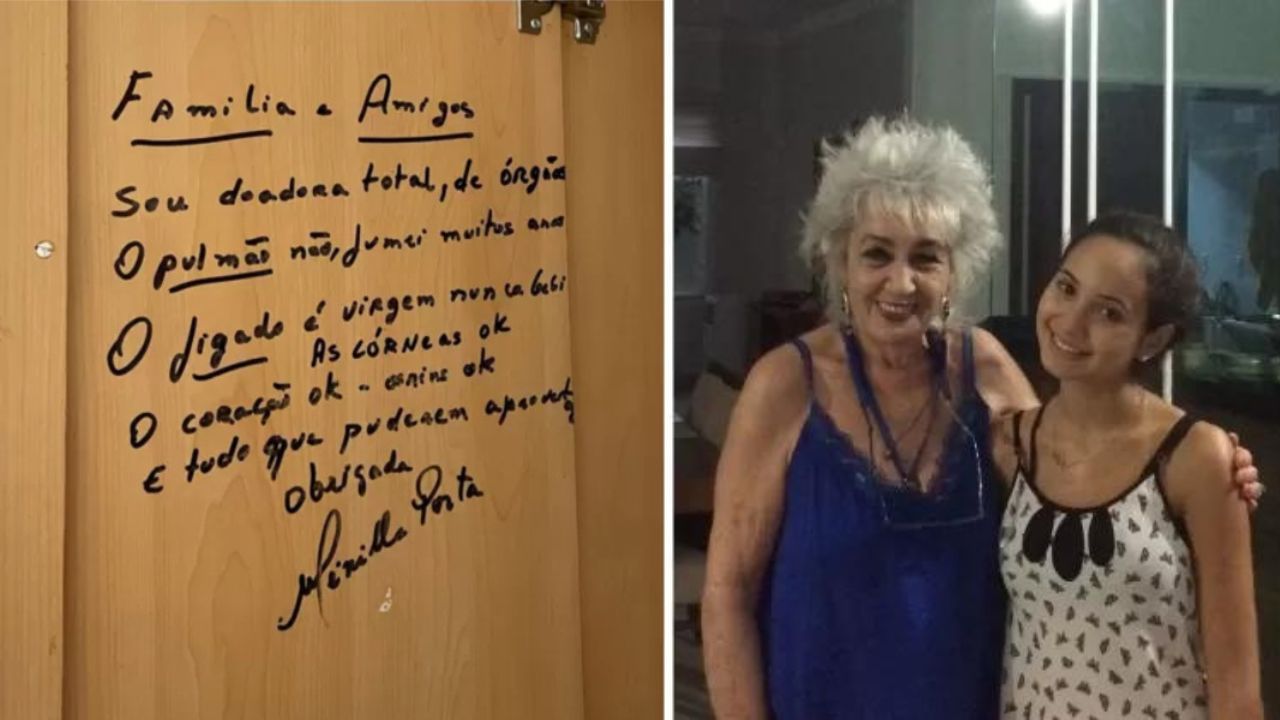 Familia e Amigos
Sou doadora total, de órgão
O pulmão não, fumei muitos anos
O fígado é virgem nunca bebi
As córneas ok
O coração ok - os rins ok
E tudo que puderem aproveit
Obrigada
Porta